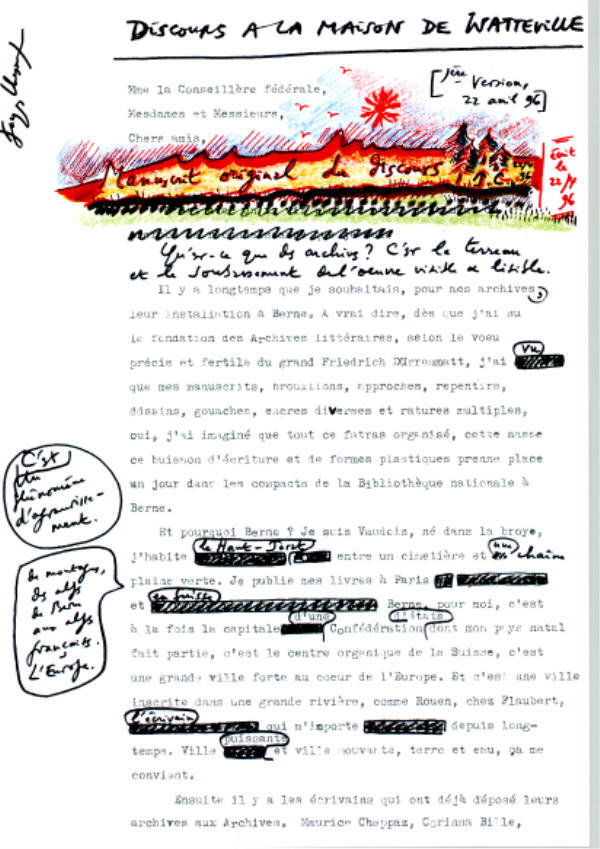 DISCOURS A LA MAISON DE WATTEVILLE
Mme la Conseillère fédérale,
[1ère version,
22 avril 96]
Mesdames et Messieurs,
Chers amis,
Manuscrit original du discours
J.C.
22/4
96
écrit
le
22/4
96
Qu'est-ce que des archives? C'est le terreau
et le soubassement de l'oeuvre visible et lisible.
Il y a longtemps que je souhaitais, pour mes archives,
leur installation à Berne. A vrai dire, dès que j'ai su
la fondation des Archives littéraires, selon le voeu
précis et fertile du grand Friedrich Dürrenmatt, j'ai vu
que mes manuscrits, brouillons, approches, repentirs,
dessins, gouaches, encres diverses et ratures multiples,
oui, j'ai imaginé que tout ce fatras organisé, cette masse
ce buisson d'écriture et de formes plastiques prenne place
un jour dans les compacts de la Bibliothèque nationale à
Berne.
C'est
un
phénomène
d'agrandisse-
ment.
Et pourquoi Berne ? Je suis Vaudois, né dans la broye,
j'habite le Haut-Jorat entre un cimetière et une chaîne
de montagnes,
des alpes
de Bern
aux alpes
françaises.
L'Europe.
plaine verte. Je publie mes livres à Paris
et en Suisse Berne, pour moi, c'est
à la fois la capitale d'une Confédération d'états dont mon pays natal
fait partie, c'est le centre organique de la Suisse, c'est
une grande ville forte au coeur de l'Europe. Et c'est une ville
inscrite dans une grande rivière, comme Rouen, chez Flaubert,
l'écrivain qui m'importe depuis long-
temps. Ville puissante et ville mouvante, terre et eau, ça me
convient.
Ensuite il y a les écrivains qui ont déjà déposé leurs
archives aux Archives. Maurice Chappaz, Corinna Bille,